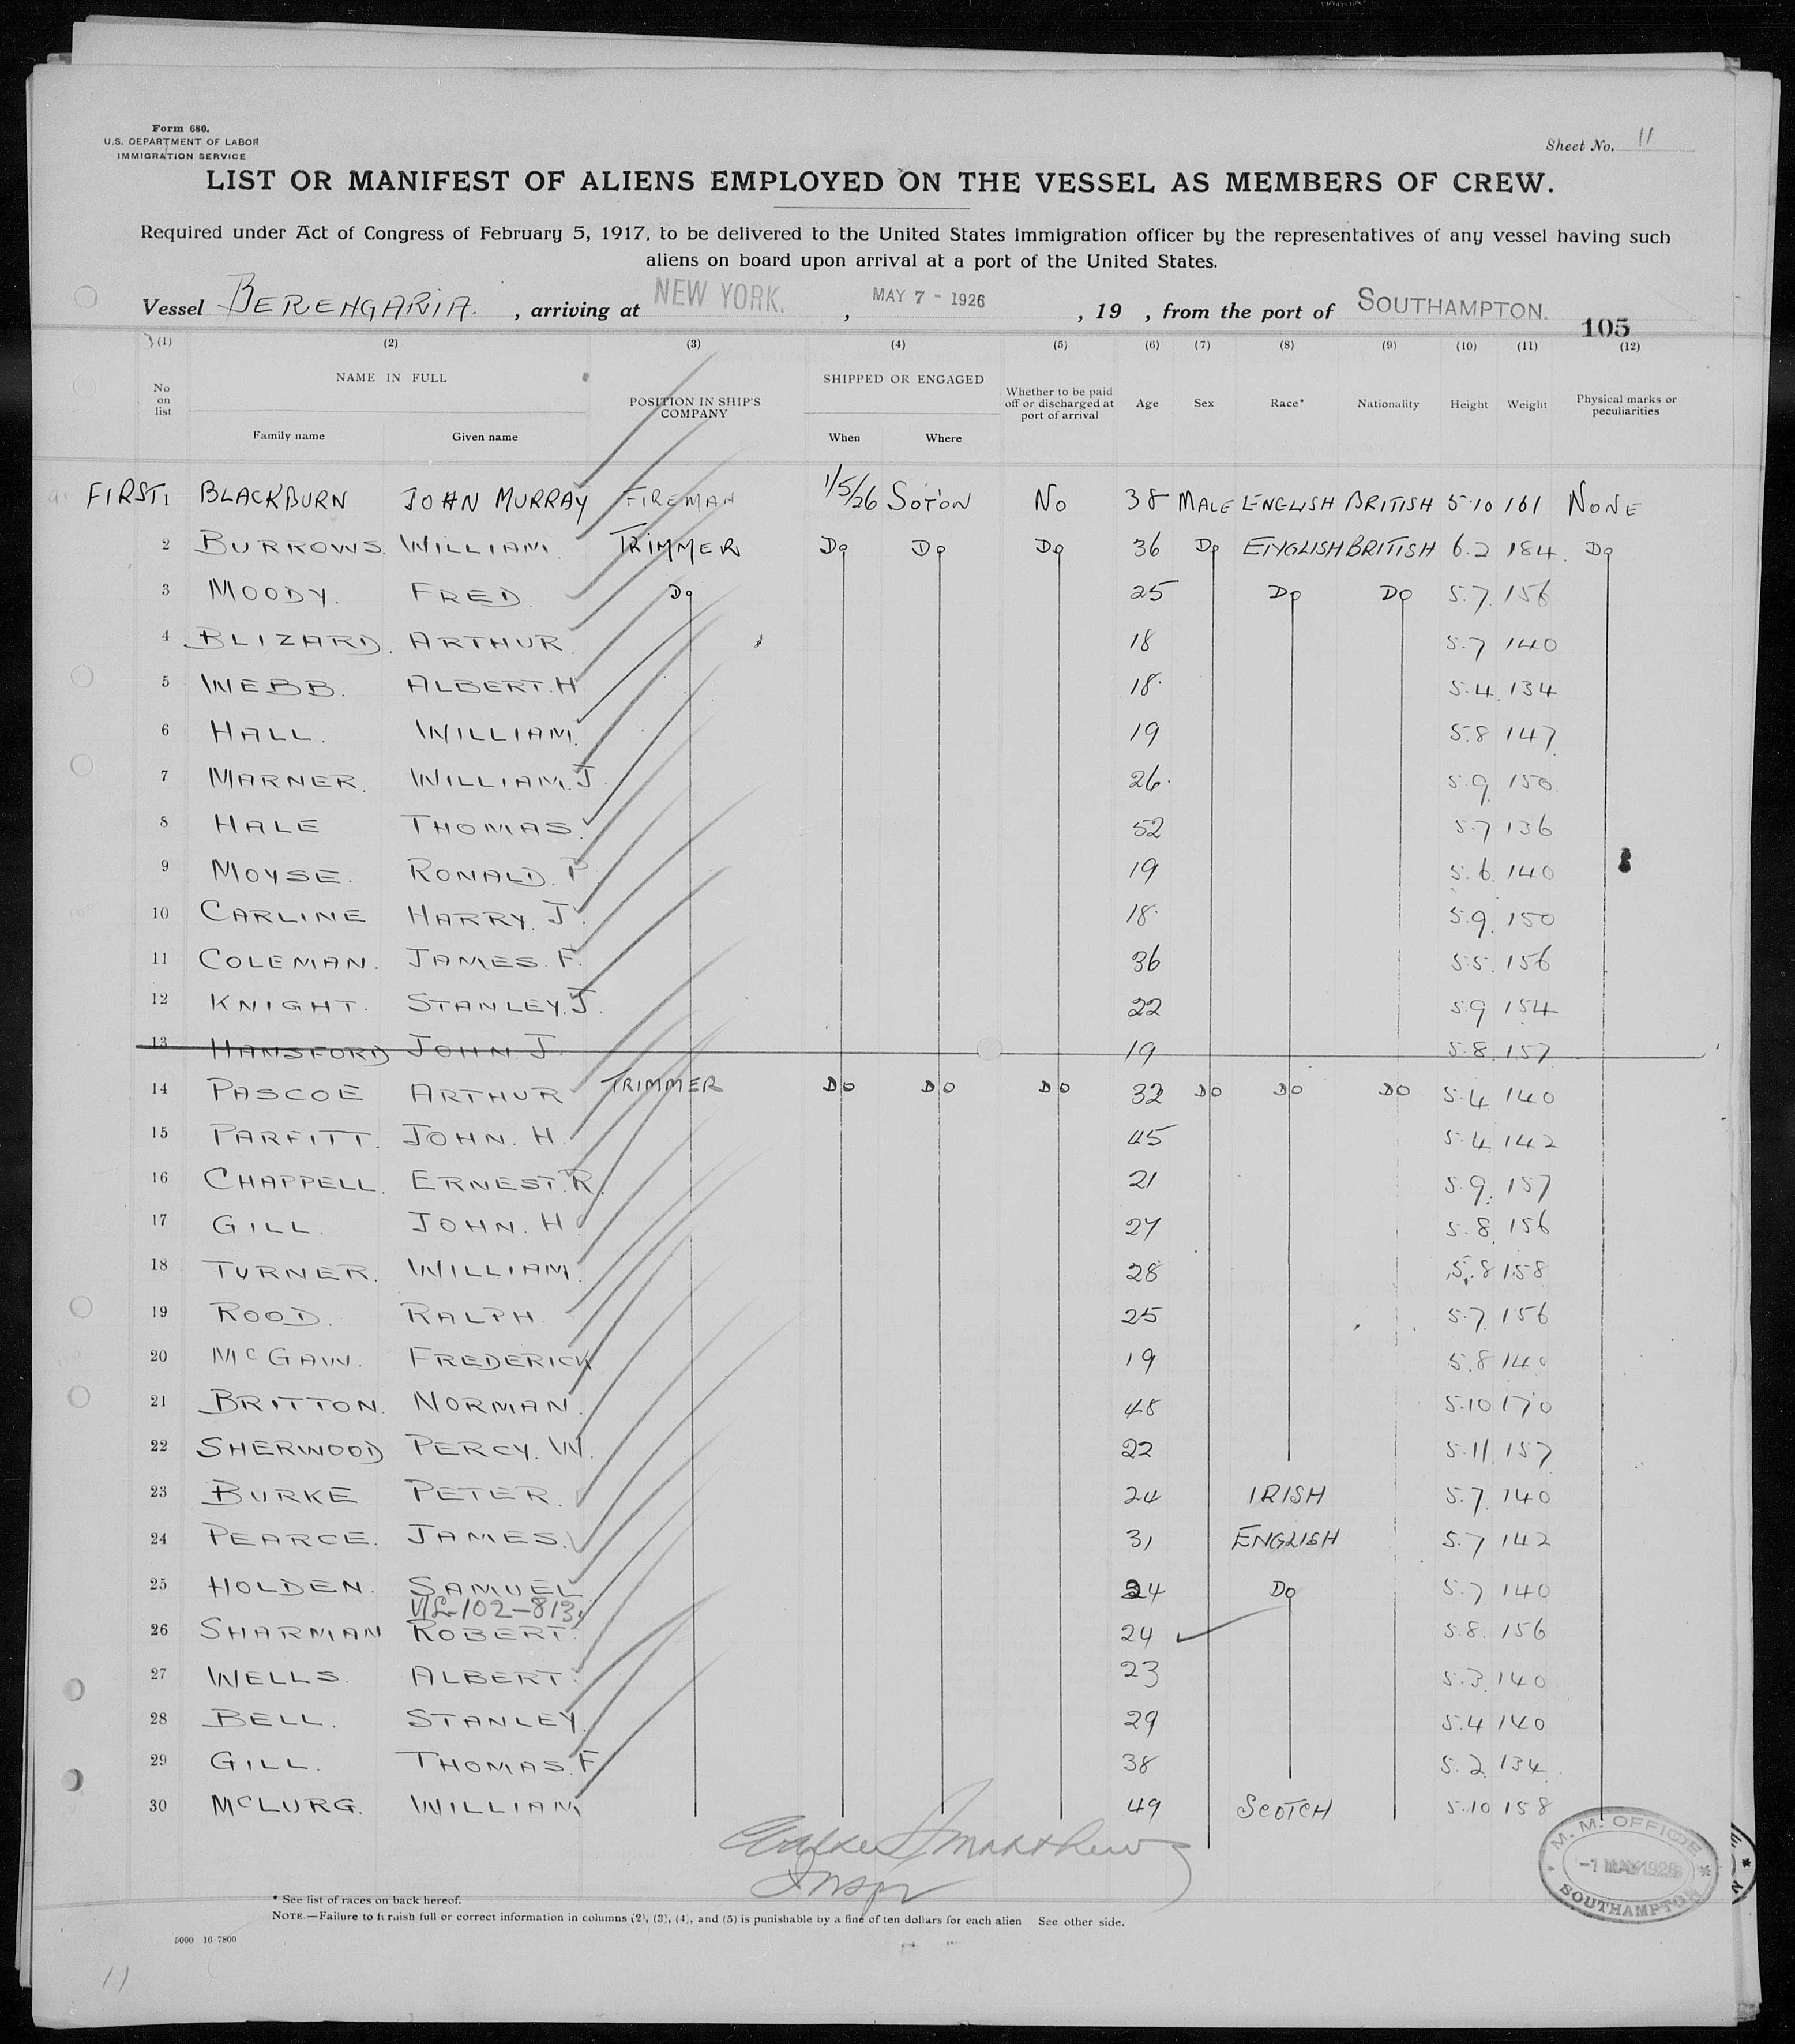 Form 680.
U.S. DEPARTMENT OF LABOR
IMMIGRATION SERVICE
Sheet No. 11
LIST OR MANIFEST OF ALIENS EMPLOYED ON THE VESSEL AS MEMBERS OF CREW.
Required under Act of Congress of February 5, 1917, to be delivered to the United States immigration officer by the representatives of any vessel having such
aliens on board upon arrival at a port of the United States.
Vessel BERENGARIA. , arriving at NEW YORK. , MAY 7 - 1926 , 19 , from the port of SOUTHAMPTON.
105
(1) (2) (3) (4) (5) (6) (7) (8) (9) (10) (11) (12)
No on list NAME IN FULL Family name Given name POSITION IN SHIP'S COMPANY SHIPPED OR ENGAGED When Where Whether to be paid off or discharged at port of arrival Age Sex Race* Nationality Height Weight Physical marks or peculiarities
FIRST 1 BLACKBURN JOHN MURRAY FIREMAN 1/5/26 SOTON NO 38 MALE ENGLISH BRITISH 5.10 161 NONE
2 BURROWS. WILLIAM. TRIMMER DO DO DO 36 DO ENGLISH BRITISH 6.2 184. DO
3 MOODY. FRED. DO 25 DO DO 5.7. 156
4 BLIZARD. ARTHUR. 18 5.7 140
5 WEBB. ALBERT. H. 18. 5.4. 134
6 HALL. WILLIAM. 19 5.8 147
7 MARNER. WILLIAM. J. 26. 5.9. 150
8 HALE THOMAS. 52 5.7 136
9 MOYSE. RONALD. P 19 5.6. 140
10 CARLINE HARRY. J. 18. 5.9. 150
11 COLEMAN. JAMES. F. 36 5.5. 156
12 KNIGHT. STANLEY. J. 22 5.9 154
13 HANSFORD JOHN. J. 19 5.8. 157
14 PASCOE ARTHUR TRIMMER DO DO DO 32 DO DO DO 5.4 140
15 PARFITT. JOHN. H. 45 5.4 142
16 CHAPPELL. ERNEST. R. 21 5.9. 157
17 GILL. JOHN. H. 27 5.8. 156
18 TURNER. WILLIAM. 28 5.8 158
19 ROOD. RALPH. 25 5.7. 156
20 McGAW. FREDERICK 19 5.8 140
21 BRITTON. NORMAN. 48 5.10 170
22 SHERWOOD PERCY. W. 22 5.11. 157
23 BURKE PETER. 24 IRISH 5.7. 140
24 PEARCE. JAMES. 31 ENGLISH 5.7 142
25 HOLDEN. SAMUEL 24 DO 5.7 140
102-813
26 SHARMAN ROBERT. 24 5.8. 156
27 WELLS. ALBERT. 23 5.3. 140
28 BELL. STANLEY. 29 5.4 140
29 GILL. THOMAS. F. 38 5.2. 134.
30 McLURG. WILLIAM 49 SCOTCH 5.10 158
Matthews
Inspr
M. M. OFFICE
-1 MAY 1926
SOUTHAMPTON
* See list of races on back hereof.
NOTE.—Failure to furnish full or correct information in columns (2), (3), (4), and (5) is punishable by a fine of ten dollars for each alien See other side.
5000 16-7800
11